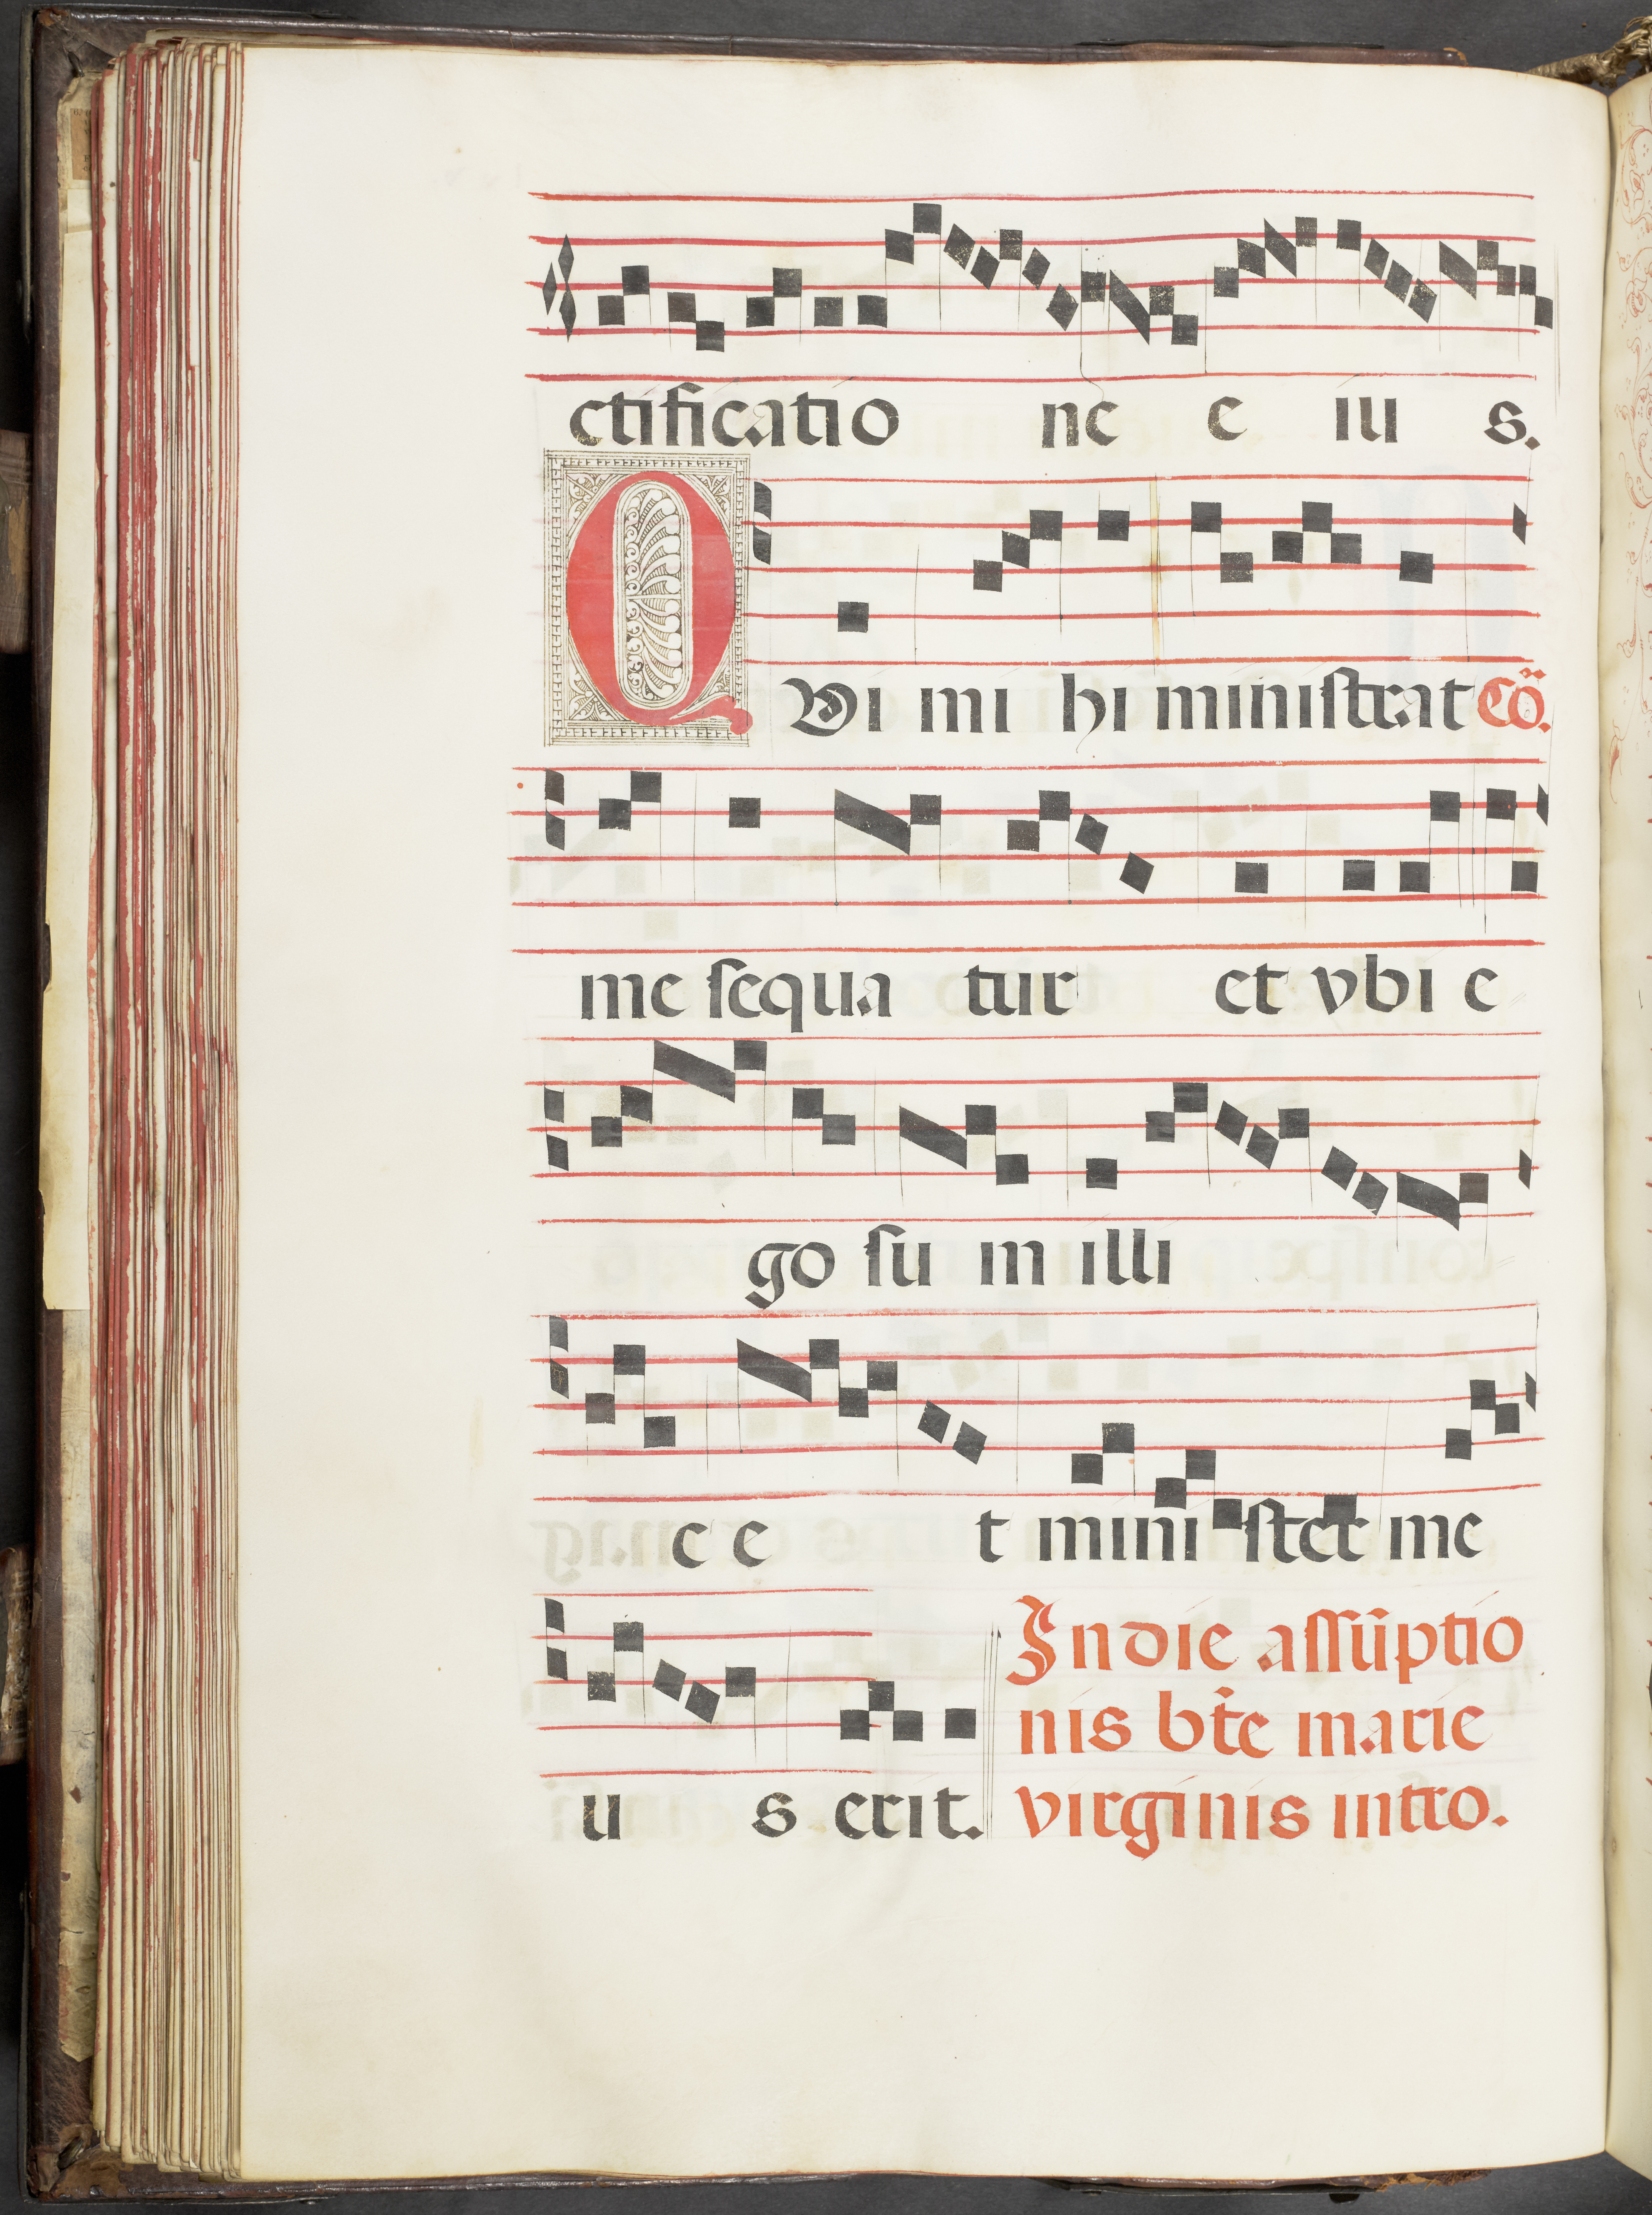 ctificatio ne e iu s.
QVi mi hi ministrat Cö.
me sequa tur et vbi e
go su m illi
c e t mini stet me
u s erit. In die assūptio
nis bt̄e marie
virginis intro.